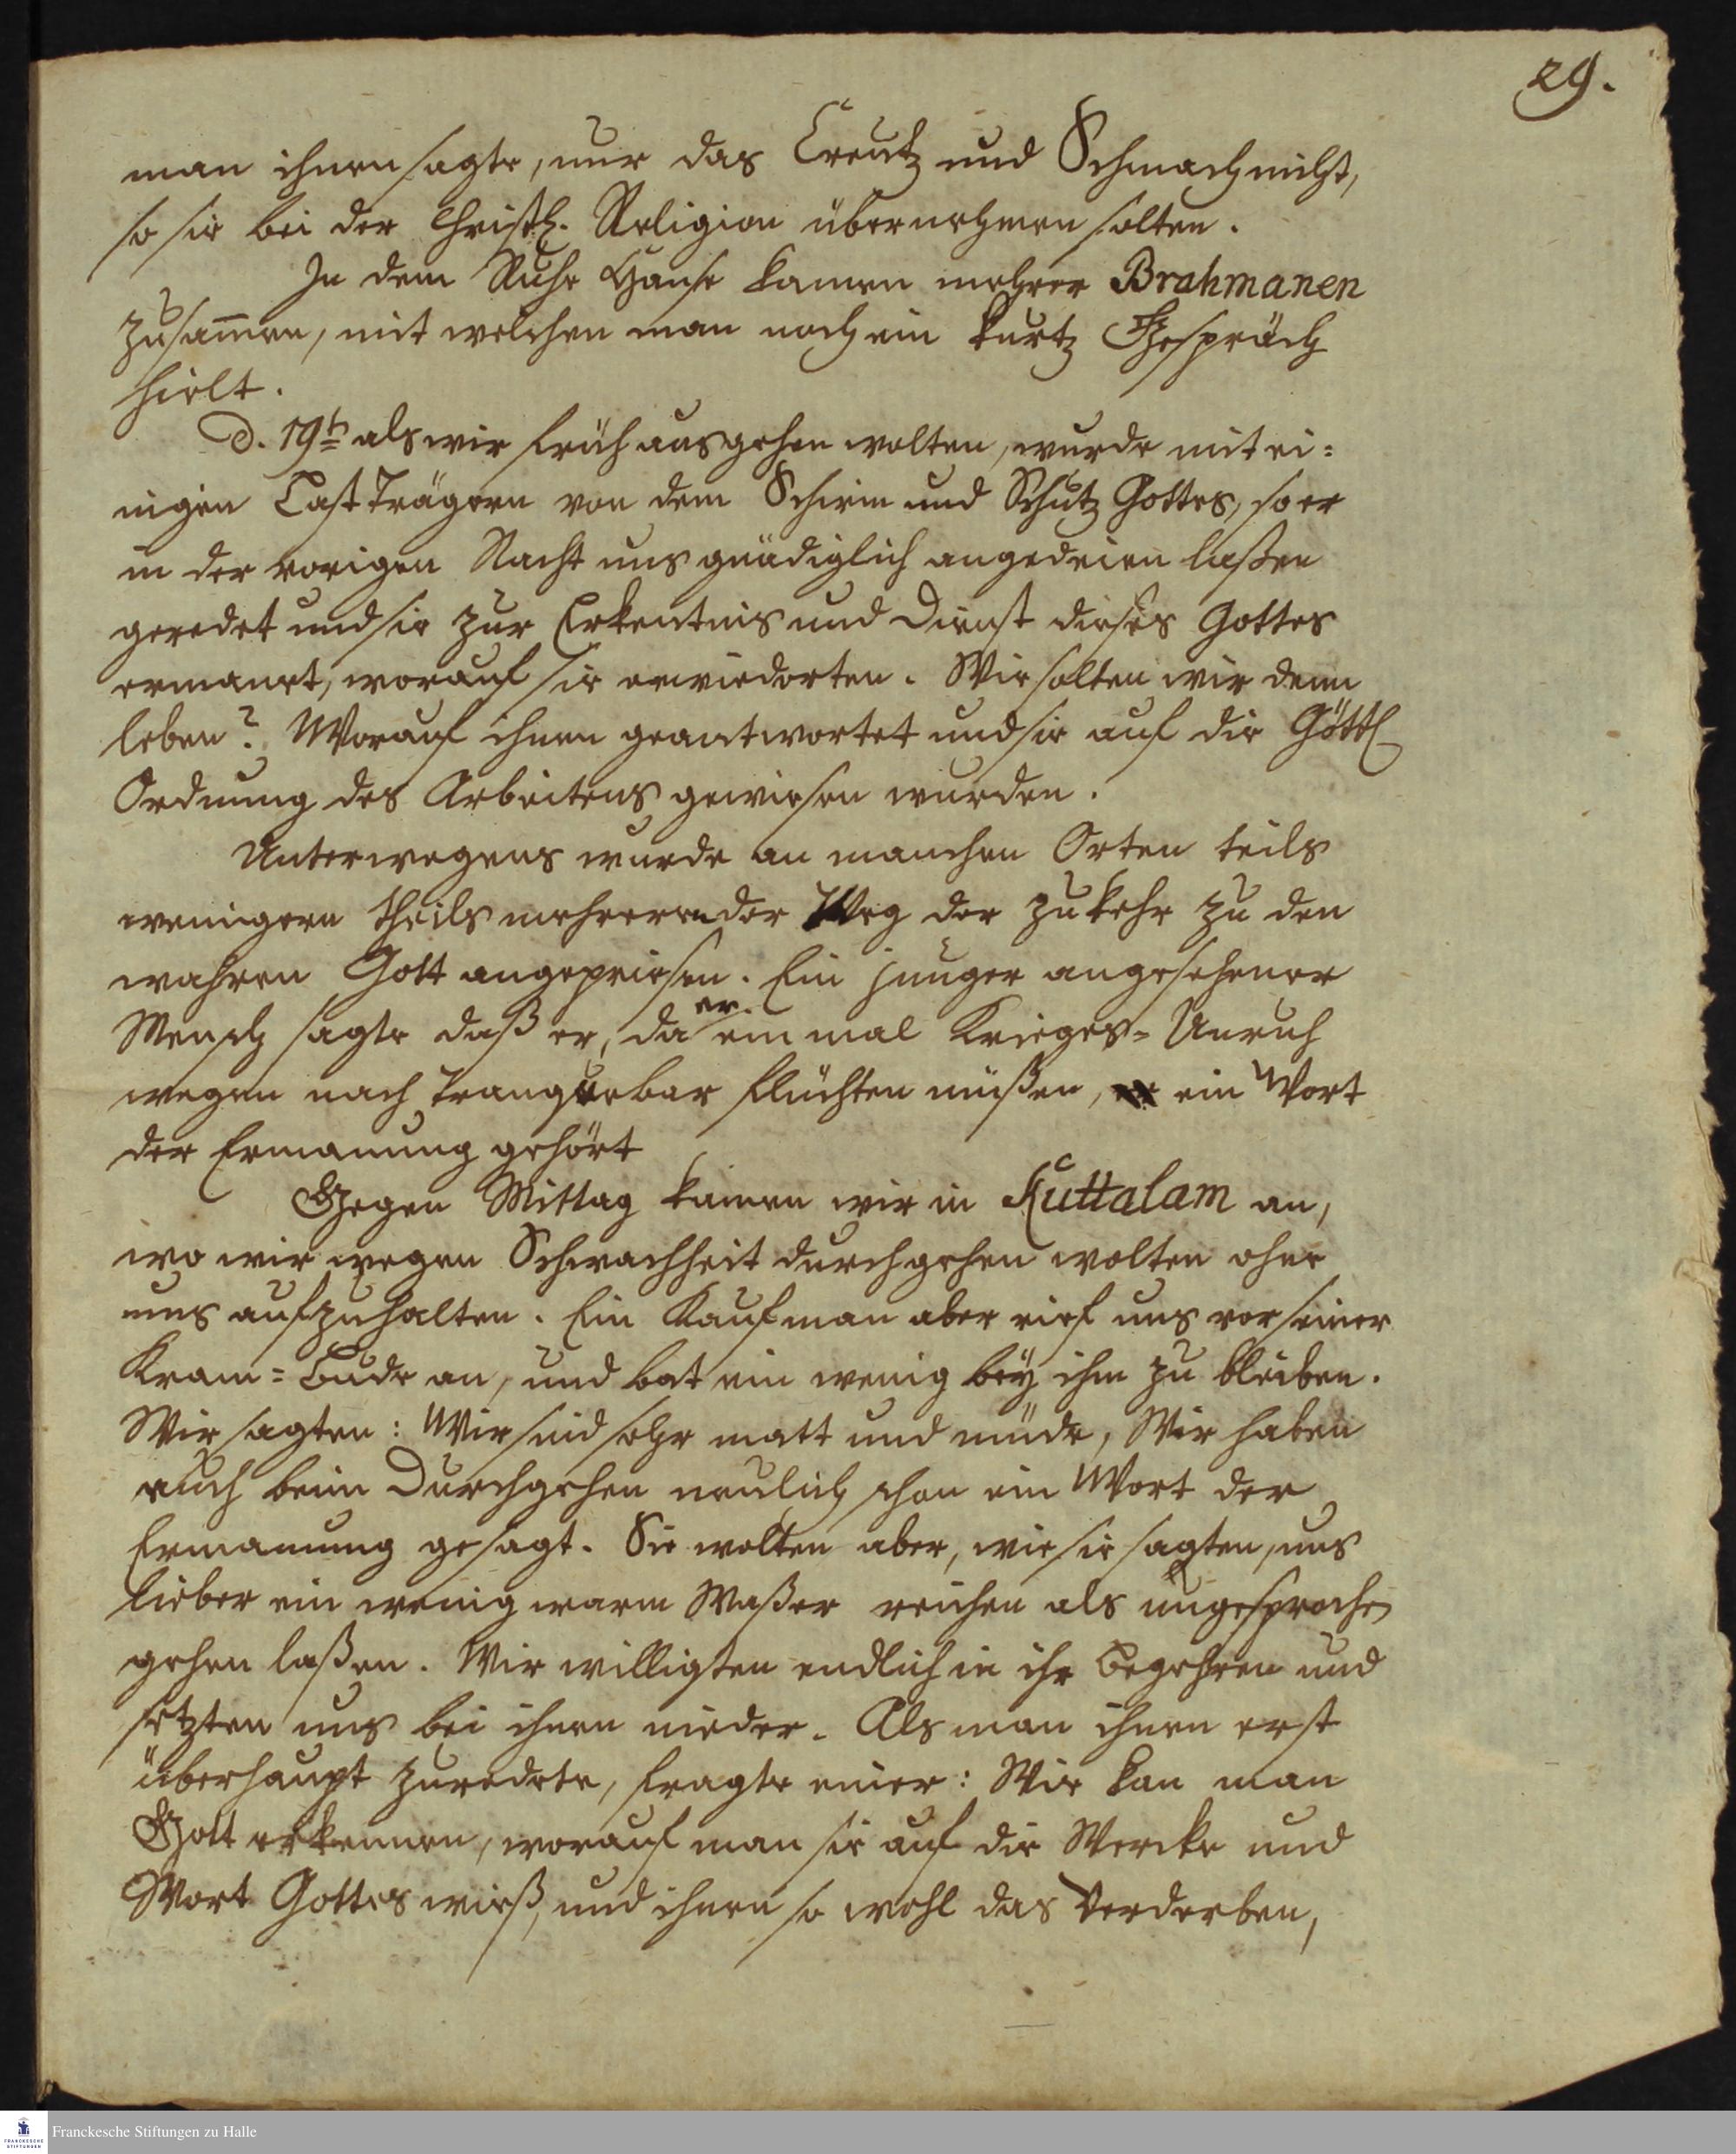 29.
man ihnen sagte, nur das Creutz und Schmach nicht,
so sie bei der Christl. Religion übernehmen solten.
In dem Ruhe Hause kamen mehrer Brahmanen
zusam̄en, mit welchen man noch ein kurtz Gespräch
hielt.
D. 19t als wir früh ausgehen wolten, wurde mit ei=
nigen Last Trägern von dem Schirm und Schutz Gottes, so er
in der vorigen Nacht uns gnädiglich angedeien laßen
geredet und sie zur Erkentnis und Dienst dieses Gottes
ermanet, worauf sie erwiederten. Wie solten wir denn
leben? Worauf ihnen geantwortet und sie auf die Göttl
Ordnung des Arbeitens gewiesen wurden.
Unterwegens wurde an manchen Orten teils
wenigern theils mehreren der Weg der Zukehr zu den
wahren Gott angepriesen. Ein junger angesehener
Mensch sagte daß er, da er einmal Krieges-Unruh
wegen nach Tranquebar flüchten müßen, ein Wort
der Ermanung gehört
Gegen Mittag kamen wir in Kuttalam an,
wo wir wegen Schwachheit durchgehen wolten ohne
uns aufzuhalten. Ein Kaufman aber rief uns vor seiner
Kram=Bude an, und bat ein wenig bey ihm zu bleiben.
Wir sagten: Wir sind sehr matt und müde, Wir haben
euch beim Durchgehen neulich schon ein Wort der
Ermanung gesagt. Sie wolten aber, wie sie sagten, uns
lieber ein wenig warm Waßer reichen als ungesprochen
gehen laßen. Wir willigten endlich in ihr Begehren und
setzten uns bei ihnen nieder. Als man ihnen erst
überhaupt zuredete, fragte einer: Wie kan man
Gott erkennen, worauf man sie auf die Wercke und
Wort Gottes wieß, und ihnen so wohl das Verderben,
Franckesche Stiftungen zu Halle